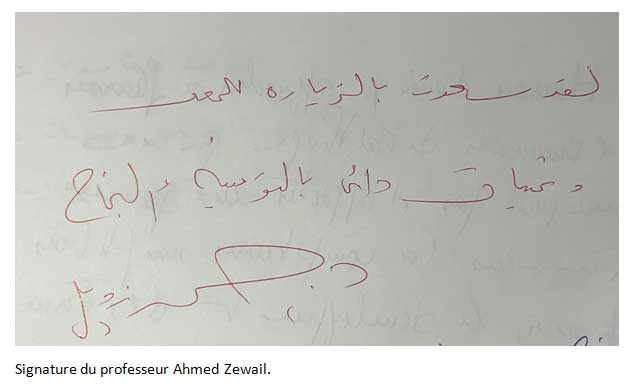 لقد سعدت بالزياره للمعهد
وتمنياتى دائما بالتوفيق والنجاح
د. أحمد زويل
Signature du professeur Ahmed Zewail.